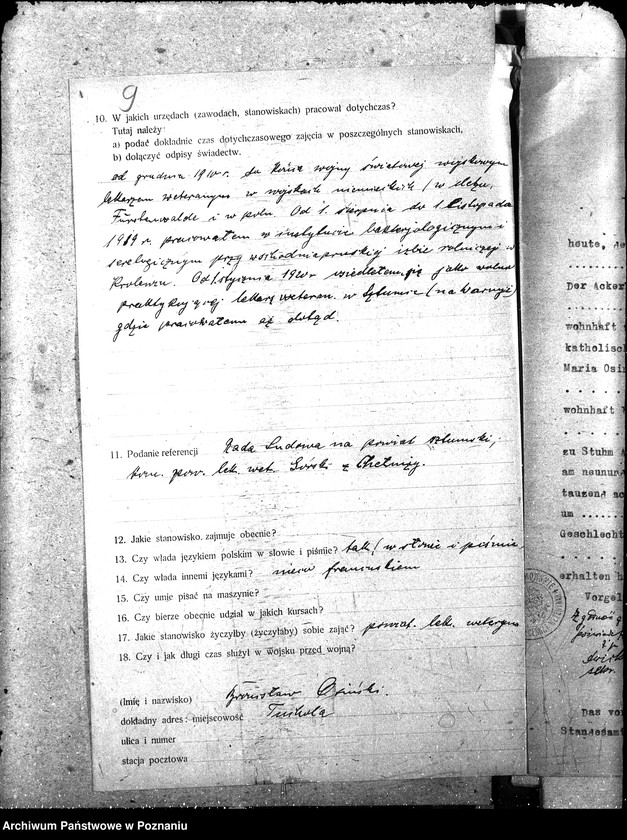 9
10. W jakich urzędach (zawodach, stanowiskach) pracował dotychczas?
Tutaj należy
a) podać dokładnie czas dotychczasowego zajęcia w poszczególnych stanowiskach,
b) dołączyć odpisy świadectw.
od grudnia 1910 r. do końca wojny światowej wojskowym
lekarzem weterynar. w wojskach niemieckich (w
Fürstenwalde i w polu. Od 1. sierpnia do 1 listopada
1919 r. pracowałem w instytucie bakterjologicznym i
serologicznym przy wschodniopruskiej izbie rolniczej w
Królewcu. Od 1 stycznia 1920 r osiedliłem się jako wolno
praktykujący lekarz weteran. w Sztumie (na Warmji)
gdzie pracowałem aż dotąd.
11. Podanie referencji Rada Ludowa na powiat sztumski,
pow. lek. wet. Górski z Chełmży.
12. Jakie stanowisko zajmuje obecnie?
13. Czy włada językiem polskim w słowie i piśmie? tak! w słowie i piśmie
14. Czy włada innemi językami? nieco francuskiem
15. Czy umie pisać na maszynie?
16. Czy bierze obecnie udział w jakich kursach?
17. Jakie stanowisko życzyłby (życzyłaby) sobie zająć? powiat. lek. weteryna
18. Czy i jak długi czas służył w wojsku przed wojną?
(Imię i nazwisko) Bronisław Osiński.
dokładny adres: miejscowość Tuchola
ulica i numer
stacja pocztowa
heute,
Der Acker
wohnhaft
katholisch
Maria Osin
wohnhaft
zu Stuhm
am neunun
tausend
um
Geschlecht
erhalten h
Vorgel
Das vor
Standesamt
Archiwum Państwowe w Poznaniu